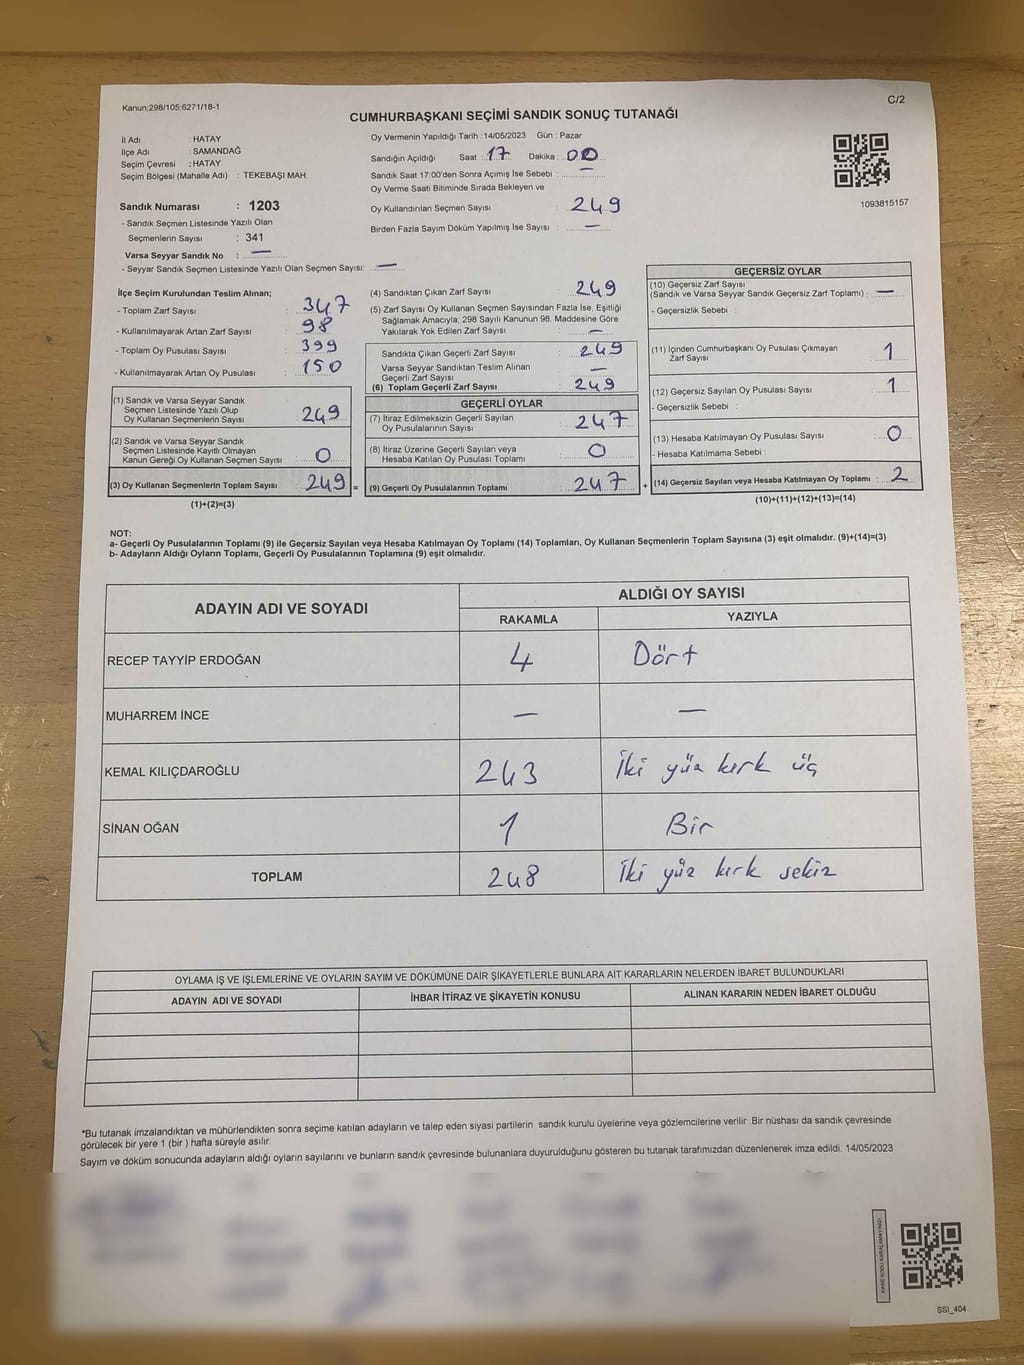 Kanun,298/105,6271/18-1
C/2
CUMHURBAŞKANI SEÇİMİ SANDIK SONUÇ TUTANAĞI
İl Adı : HATAY
İlçe Adı : SAMANDAĞ
Seçim Çevresi : HATAY
Seçim Bölgesi (Mahalle Adı) : TEKEBAŞI MAH.
Oy Vermenin Yapıldığı Tarih :14/05/2023 Gün : Pazar
Sandığın Açıldığı Saat : 17 Dakika : 00
Sandık Saat 17:00'den Sonra Açımış İse Sebebi : —
Oy Verme Saati Bitiminde Sırada Bekleyen ve
Oy Kullandırılan Seçmen Sayısı : 249
Birden Fazla Sayım Döküm Yapılmış İse Sayısı : —
1093815157
Sandık Numarası : 1203
- Sandık Seçmen Listesinde Yazılı Olan
Seçmenlerin Sayısı : 341
Varsa Seyyar Sandık No : —
- Seyyar Sandık Seçmen Listesinde Yazılı Olan Seçmen Sayısı: —
İlçe Seçim Kurulundan Teslim Alınan;
- Toplam Zarf Sayısı : 347
- Kullanılmayarak Artan Zarf Sayısı : 98
- Toplam Oy Pusulası Sayısı : 399
- Kullanılmayarak Artan Oy Pusulası : 150
(1) Sandık ve Varsa Seyyar Sandık
Seçmen Listesinde Yazılı Olup
Oy Kullanan Seçmenlerin Sayısı : 249
(2) Sandık ve Varsa Seyyar Sandık
Seçmen Listesinde Kayıtlı Olmayan
Kanun Gereği Oy Kullanan Seçmen Sayısı : 0
(3) Oy Kullanan Seçmenlerin Toplam Sayısı : 249 =
(1)+(2)=(3)
(4) Sandıktan Çıkan Zarf Sayısı : 249
(5) Zarf Sayısı Oy Kullanan Seçmen Sayısından Fazla İse, Eşitliği
Sağlamak Amacıyla; 298 Sayılı Kanunun 98. Maddesine Göre
Yakılarak Yok Edilen Zarf Sayısı : —
Sandıkta Çıkan Geçerli Zarf Sayısı : 249
Varsa Seyyar Sandıktan Teslim Alınan
Geçerli Zarf Sayısı : —
(6) Toplam Geçerli Zarf Sayısı : 249
GEÇERLİ OYLAR
(7) İtiraz Edilmeksizin Geçerli Sayılan
Oy Pusulalarının Sayısı : 247
(8) İtiraz Üzerine Geçerli Sayılan veya
Hesaba Katılan Oy Pusulası Toplamı : 0
(9) Geçerli Oy Pusulalarının Toplamı : 247 +
GEÇERSİZ OYLAR
(10) Geçersiz Zarf Sayısı
(Sandık ve Varsa Seyyar Sandık Geçersiz Zarf Toplamı) : —
- Geçersizlik Sebebi :
(11) İçinden Cumhurbaşkanı Oy Pusulası Çıkmayan
Zarf Sayısı : 1
(12) Geçersiz Sayılan Oy Pusulası Sayısı : 1
- Geçersizlik Sebebi :
(13) Hesaba Katılmayan Oy Pusulası Sayısı : 0
- Hesaba Katılmama Sebebi :
(14) Geçersiz Sayılan veya Hesaba Katılmayan Oy Toplamı : 2
(10)+(11)+(12)+(13)=(14)
NOT:
a- Geçerli Oy Pusulalarının Toplamı (9) ile Geçersiz Sayılan veya Hesaba Katılmayan Oy Toplamı (14) Toplamları, Oy Kullanan Seçmenlerin Toplam Sayısına (3) eşit olmalıdır. (9)+(14)=(3)
b- Adayların Aldığı Oyların Toplamı, Geçerli Oy Pusulalarının Toplamına (9) eşit olmalıdır.
ADAYIN ADI VE SOYADI
ALDIĞI OY SAYISI
RAKAMLA YAZIYLA
RECEP TAYYİP ERDOĞAN 4 Dört
MUHARREM İNCE — —
KEMAL KILIÇDAROĞLU 243 İki yüz kırk üç
SİNAN OĞAN 1 Bir
TOPLAM 248 İki yüz kırk sekiz
OYLAMA İŞ VE İŞLEMLERİNE VE OYLARIN SAYIM VE DÖKÜMÜNE DAİR ŞİKAYETLERLE BUNLARA AİT KARARLARIN NELERDEN İBARET BULUNDUKLARI
ADAYIN ADI VE SOYADI İHBAR İTİRAZ VE ŞİKAYETİN KONUSU ALINAN KARARIN NEDEN İBARET OLDUĞU
*Bu tutanak imzalandıktan ve mühürlendikten sonra seçime katılan adayların ve talep eden siyasi partilerin sandık kurulu üyelerine veya gözlemcilerine verilir .Bir nüshası da sandık çevresinde
görülecek bir yere 1 (bir ) hafta süreyle asılır.
Sayım ve döküm sonucunda adayların aldığı oyların sayılarını ve bunların sandık çevresinde bulunanlara duyurulduğunu gösteren bu tutanak tarafımızdan düzenlenerek imza edildi. 14/05/2023
KARE KODU KARALAMAYINIZ!
SSI_404